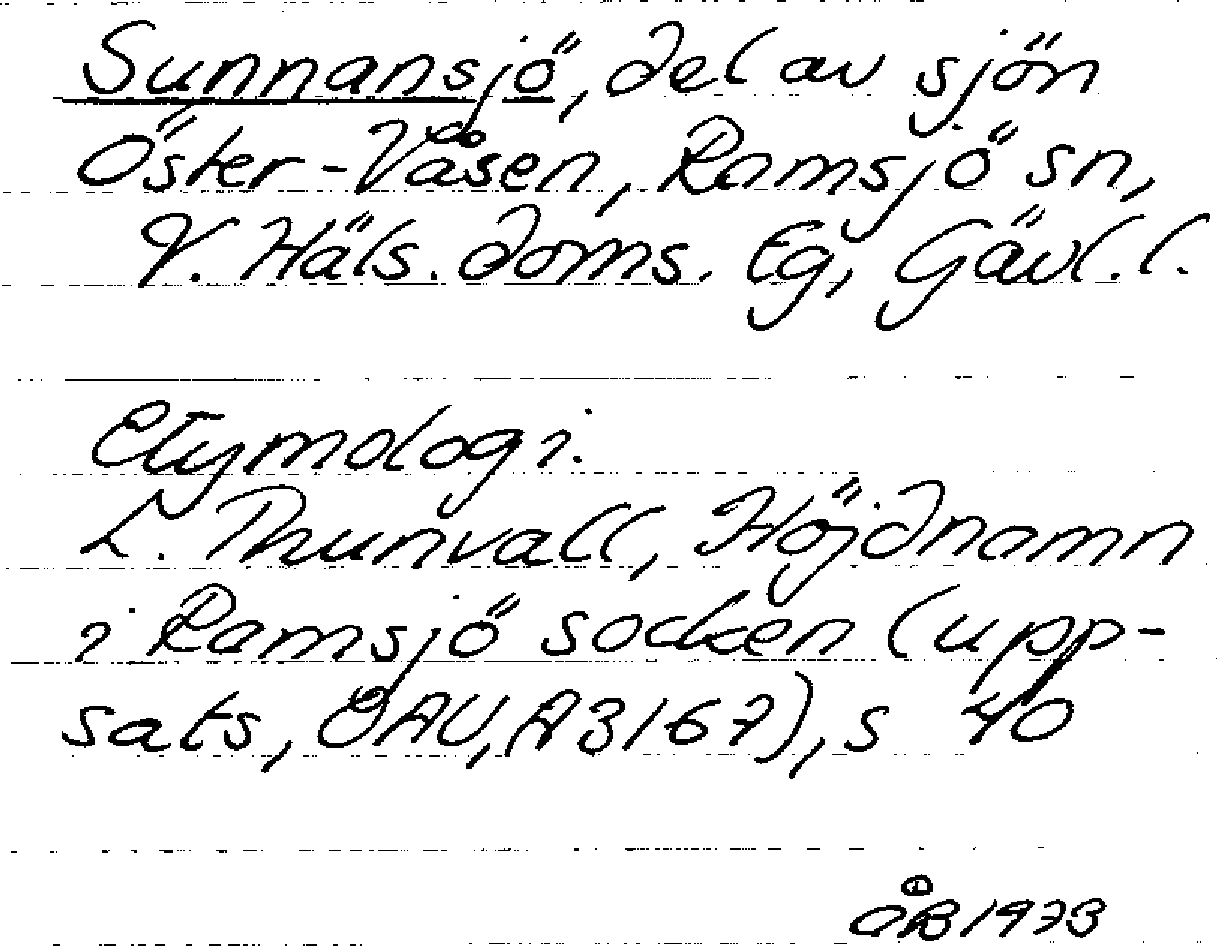 Sunnansjö, del av sjön
Öster-Våsen, Ramsjö sn,
V. Häls. doms. Eg, Gävl. l.
Etymologi.
L. Thunvall, Höjdnamn
i Ramsjö socken (upp-
sats, OAU, A3167), s 40
ÅB 1973